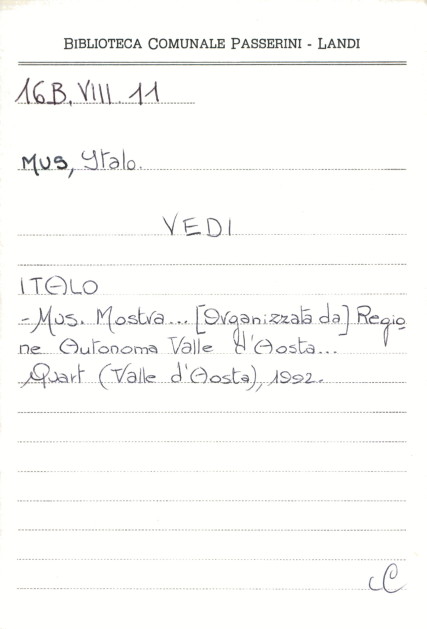 BIBLIOTECA COMUNALE PASSERINI - LANDI
16B. VIII. 11
MUS, Italo.
VEDI
ITALO
- Mus. Mostra... [Organizzata da] Regio
ne Autonoma Valle d'Aosta...
Quart (Valle d'Aosta), 1992.
C